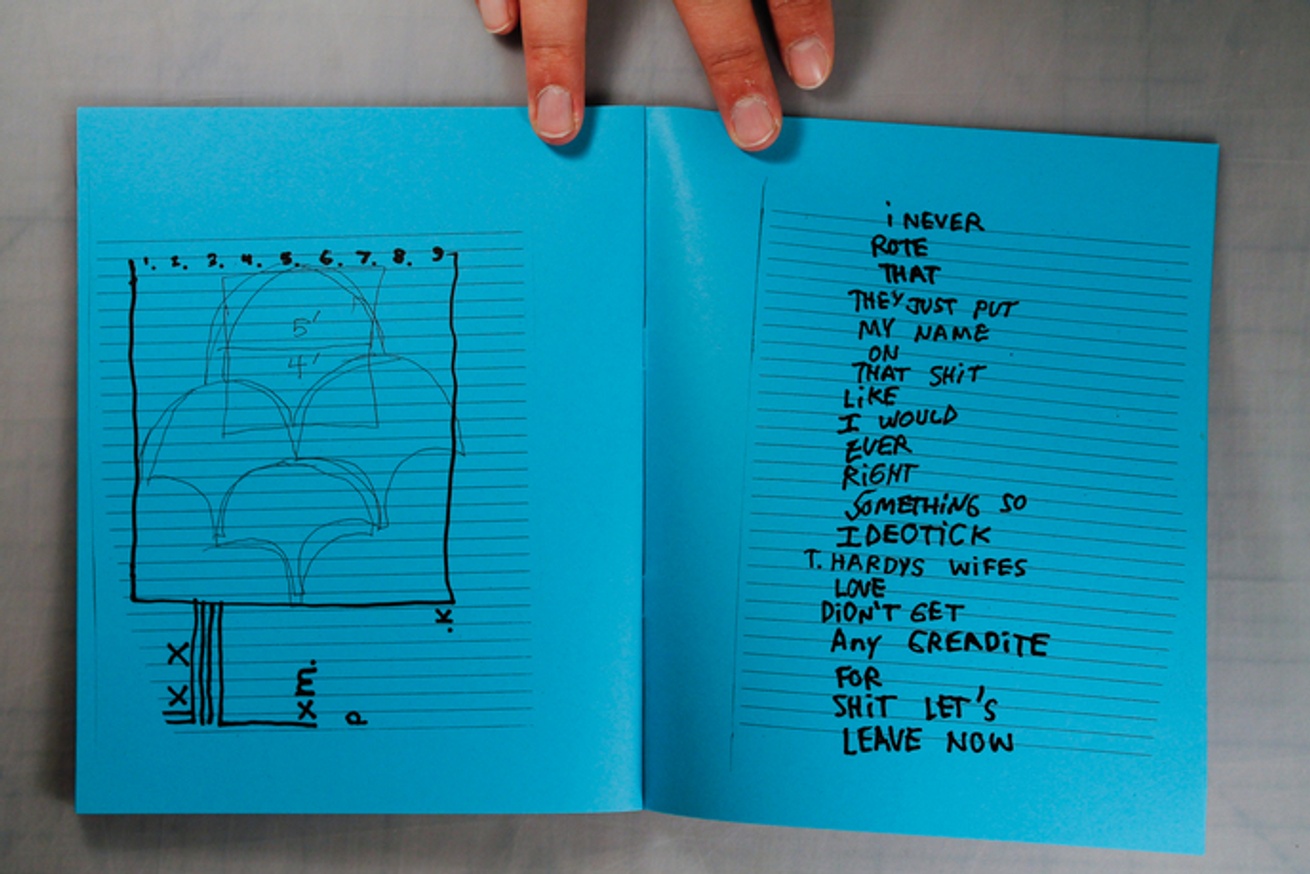 1. 2. 3. 4. 5. 6. 7. 8. 9
5'
4'
.K
X X
xm.
P
i NEVER
ROTE
THAT
THEY JUST PUT
MY NAME
ON
THAT SHiT
LiKE
I WOULD
EVER
RiGHT
SOMETHiNG SO
IDEOTiCK
T. HARDYS WiFES
LOVE
DiDN'T GET
Any GREADiTE
FOR
SHiT LET'S
LEAVE NOW